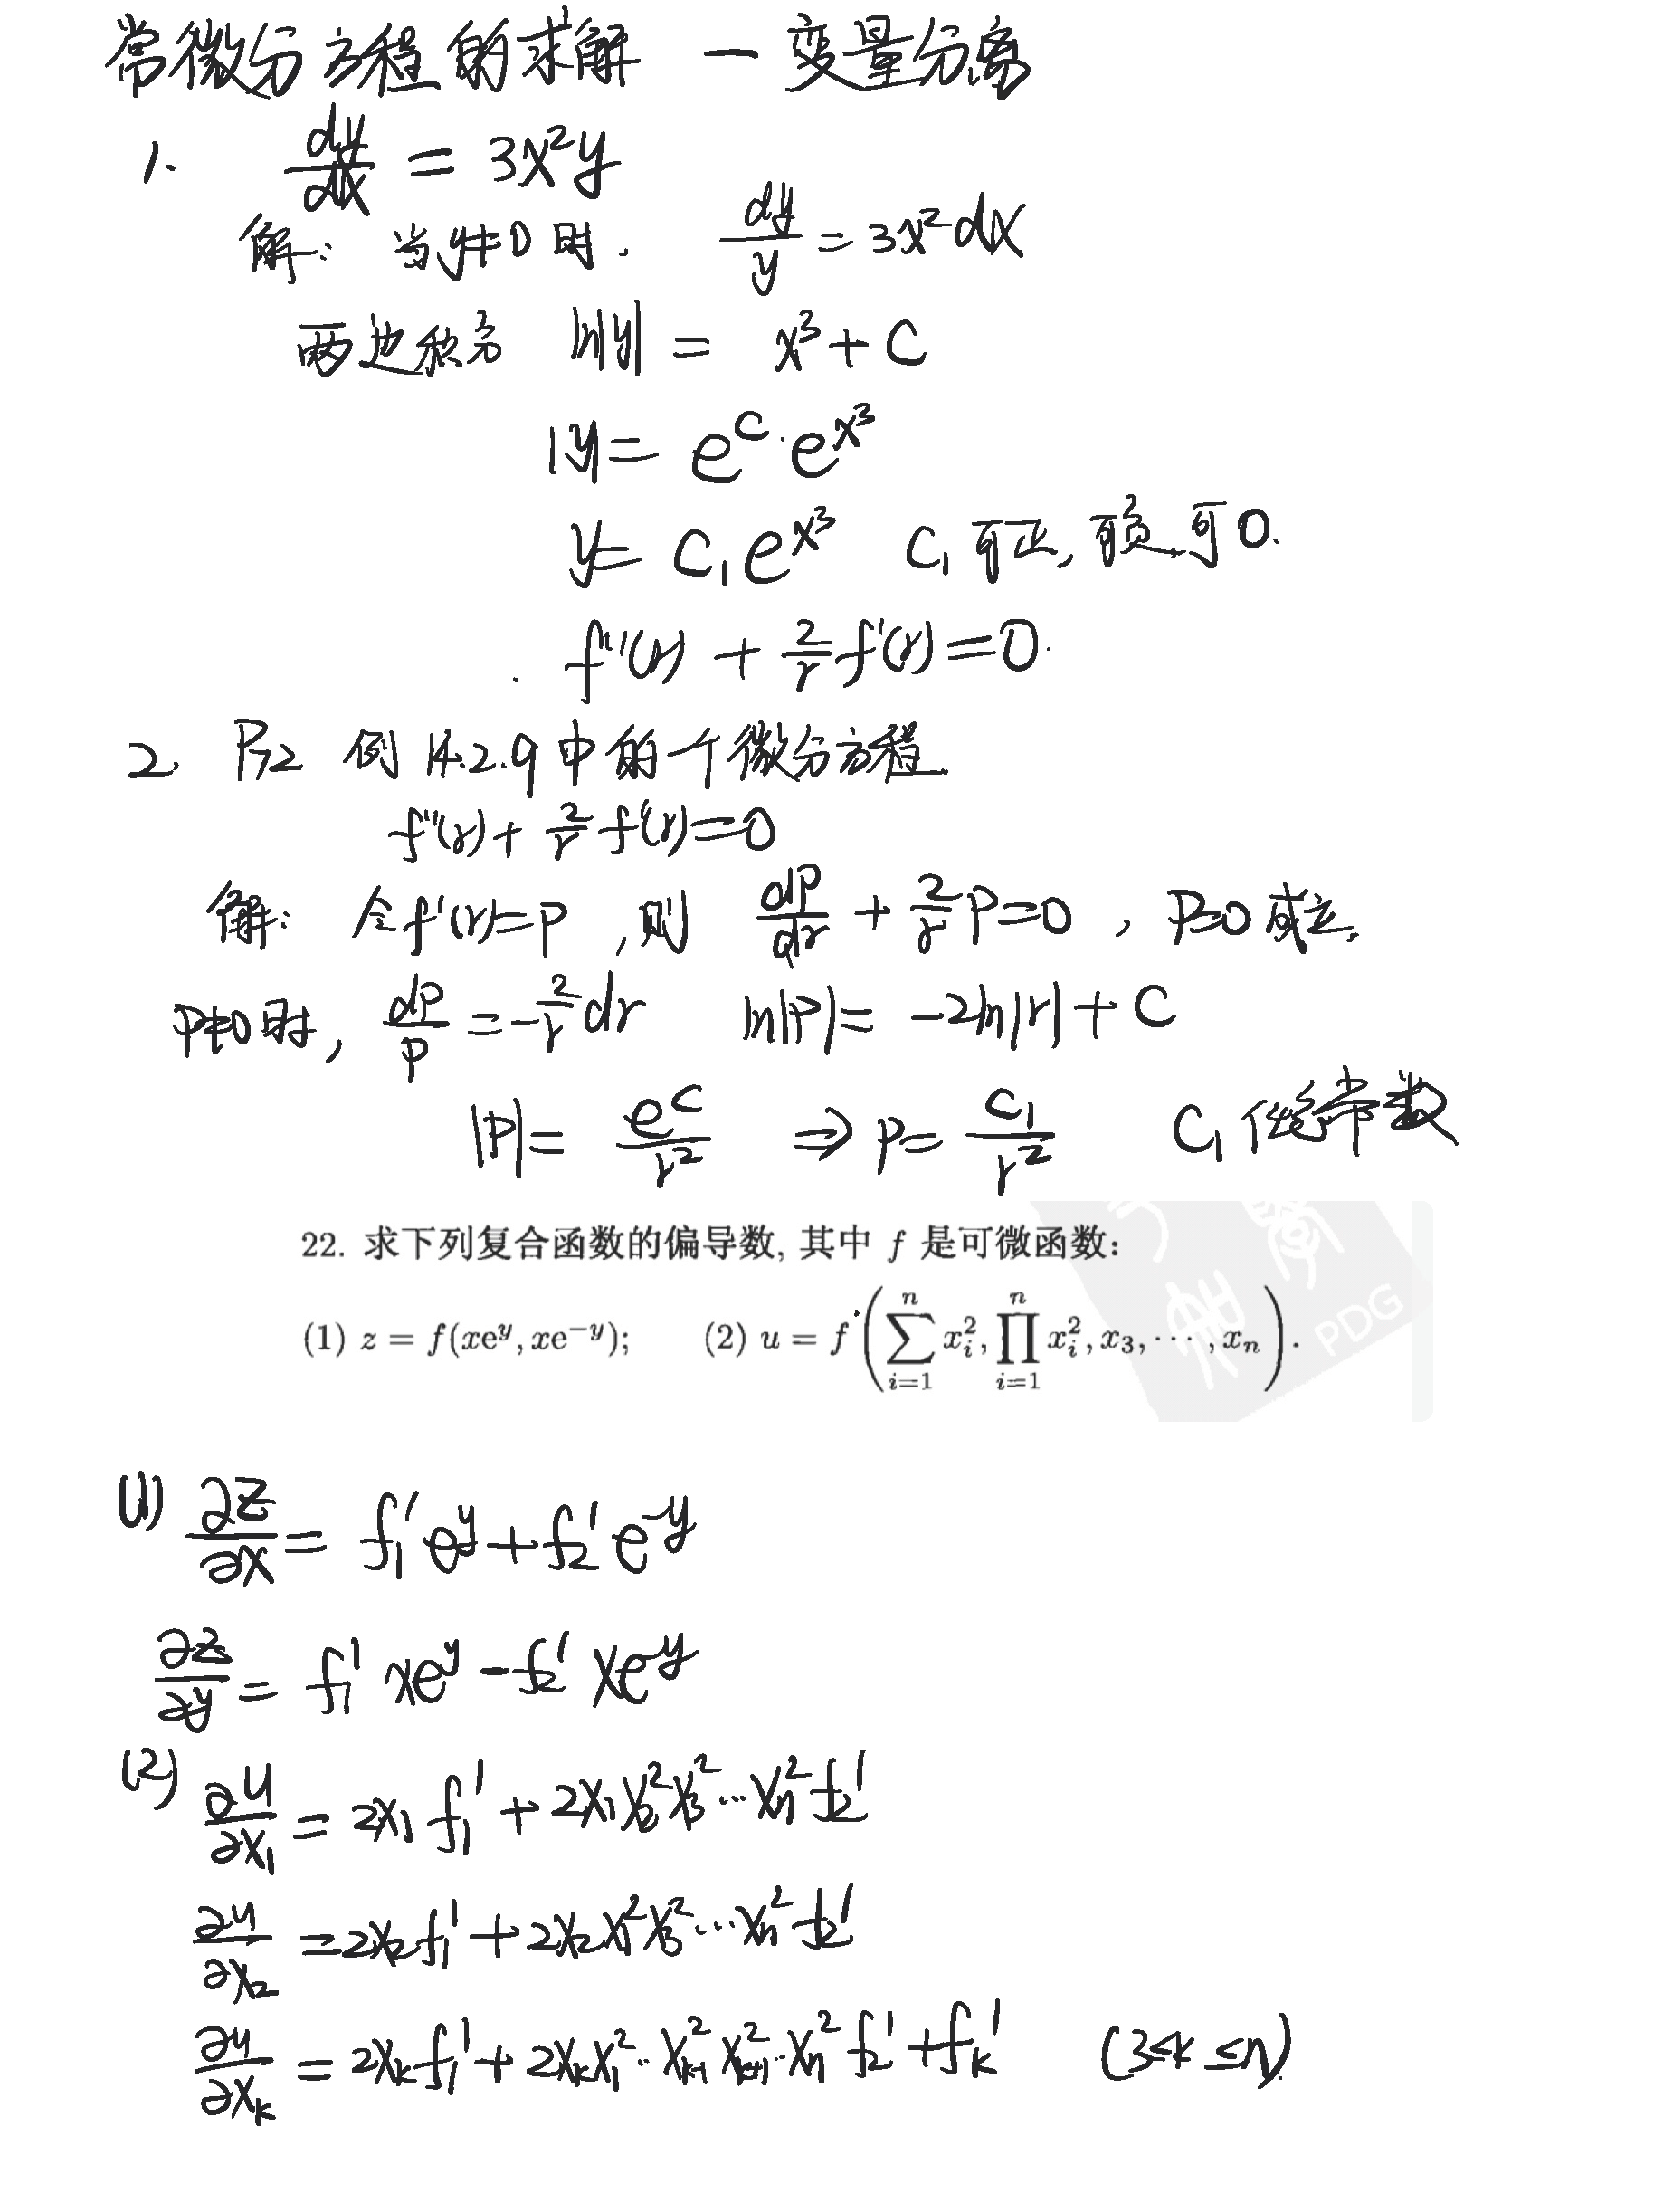 常微分方程的求解 — 变量分离
1. dy/dx = 3x²y
解: 当y≠0时. dy/y = 3x²dx
两边积分 ln|y| = x³ + C
|y| = e^C · e^(x³)
y = C₁e^(x³) C₁可正, 可负, 可0.
f''(r) + 2/r f'(r) = 0.
2. P72 例 14.2.9 中的一个微分方程
f''(r) + 2/r f'(r) = 0
解: 令f'(r)=P, 则 dP/dr + 2/r P=0, P=0 成立.
P≠0时, dP/P = -2/r dr ln|P| = -2ln|r| + C
|P| = e^C/r² ⇒ P = C₁/r² C₁任意常数
22. 求下列复合函数的偏导数, 其中 f 是可微函数:
(1) z = f(xe^y, xe^(-y)); (2) u = f(∑_{i=1}^{n} x_i², ∏_{i=1}^{n} x_i², x₃, ···, x_n).
(1) ∂z/∂x = f₁' e^y + f₂' e^(-y)
∂z/∂y = f₁' xe^y - f₂' xe^(-y)
(2) ∂u/∂x₁ = 2x₁f₁' + 2x₁x₂²x₃²···x_n² f₂'
∂u/∂x₂ = 2x₂f₁' + 2x₂x₁²x₃²···x_n² f₂'
∂u/∂x_k = 2x_k f₁' + 2x_k x₁²···x_{k-1}² x_{k+1}²···x_n² f₂' + f_k' (3≤k≤n)
PDG